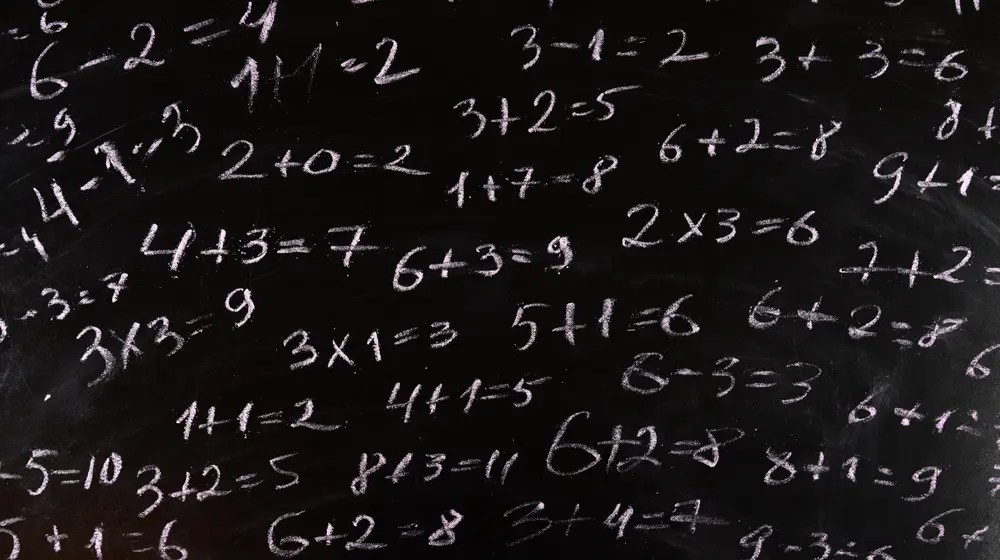 6
6 - 2 = 4
1+1 = 2
3 - 1 = 2
3 + 3 = 6
= 9
4 - 1 = 3
3 + 2 = 5
6 + 2 = 8
8 +
2 + 0 = 2
1 + 7 = 8
9 + 1 =
= 4
4 + 3 = 7
6 + 3 = 9
2 x 3 = 6
7 + 2 =
- 3 = 7
3 x 3 = 9
3 x 1 = 3
5 + 1 = 6
6 + 2 = 8
6
6 - 3 = 3
1 + 1 = 2
4 + 1 = 5
6 + 1 =
- 5 = 10
3 + 2 = 5
8 + 3 = 11
6 + 2 = 8
8 + 1 = 9
5 + 1 = 6
6 + 2 = 8
3 + 4 = 7
9 - 3 = 6
6 +